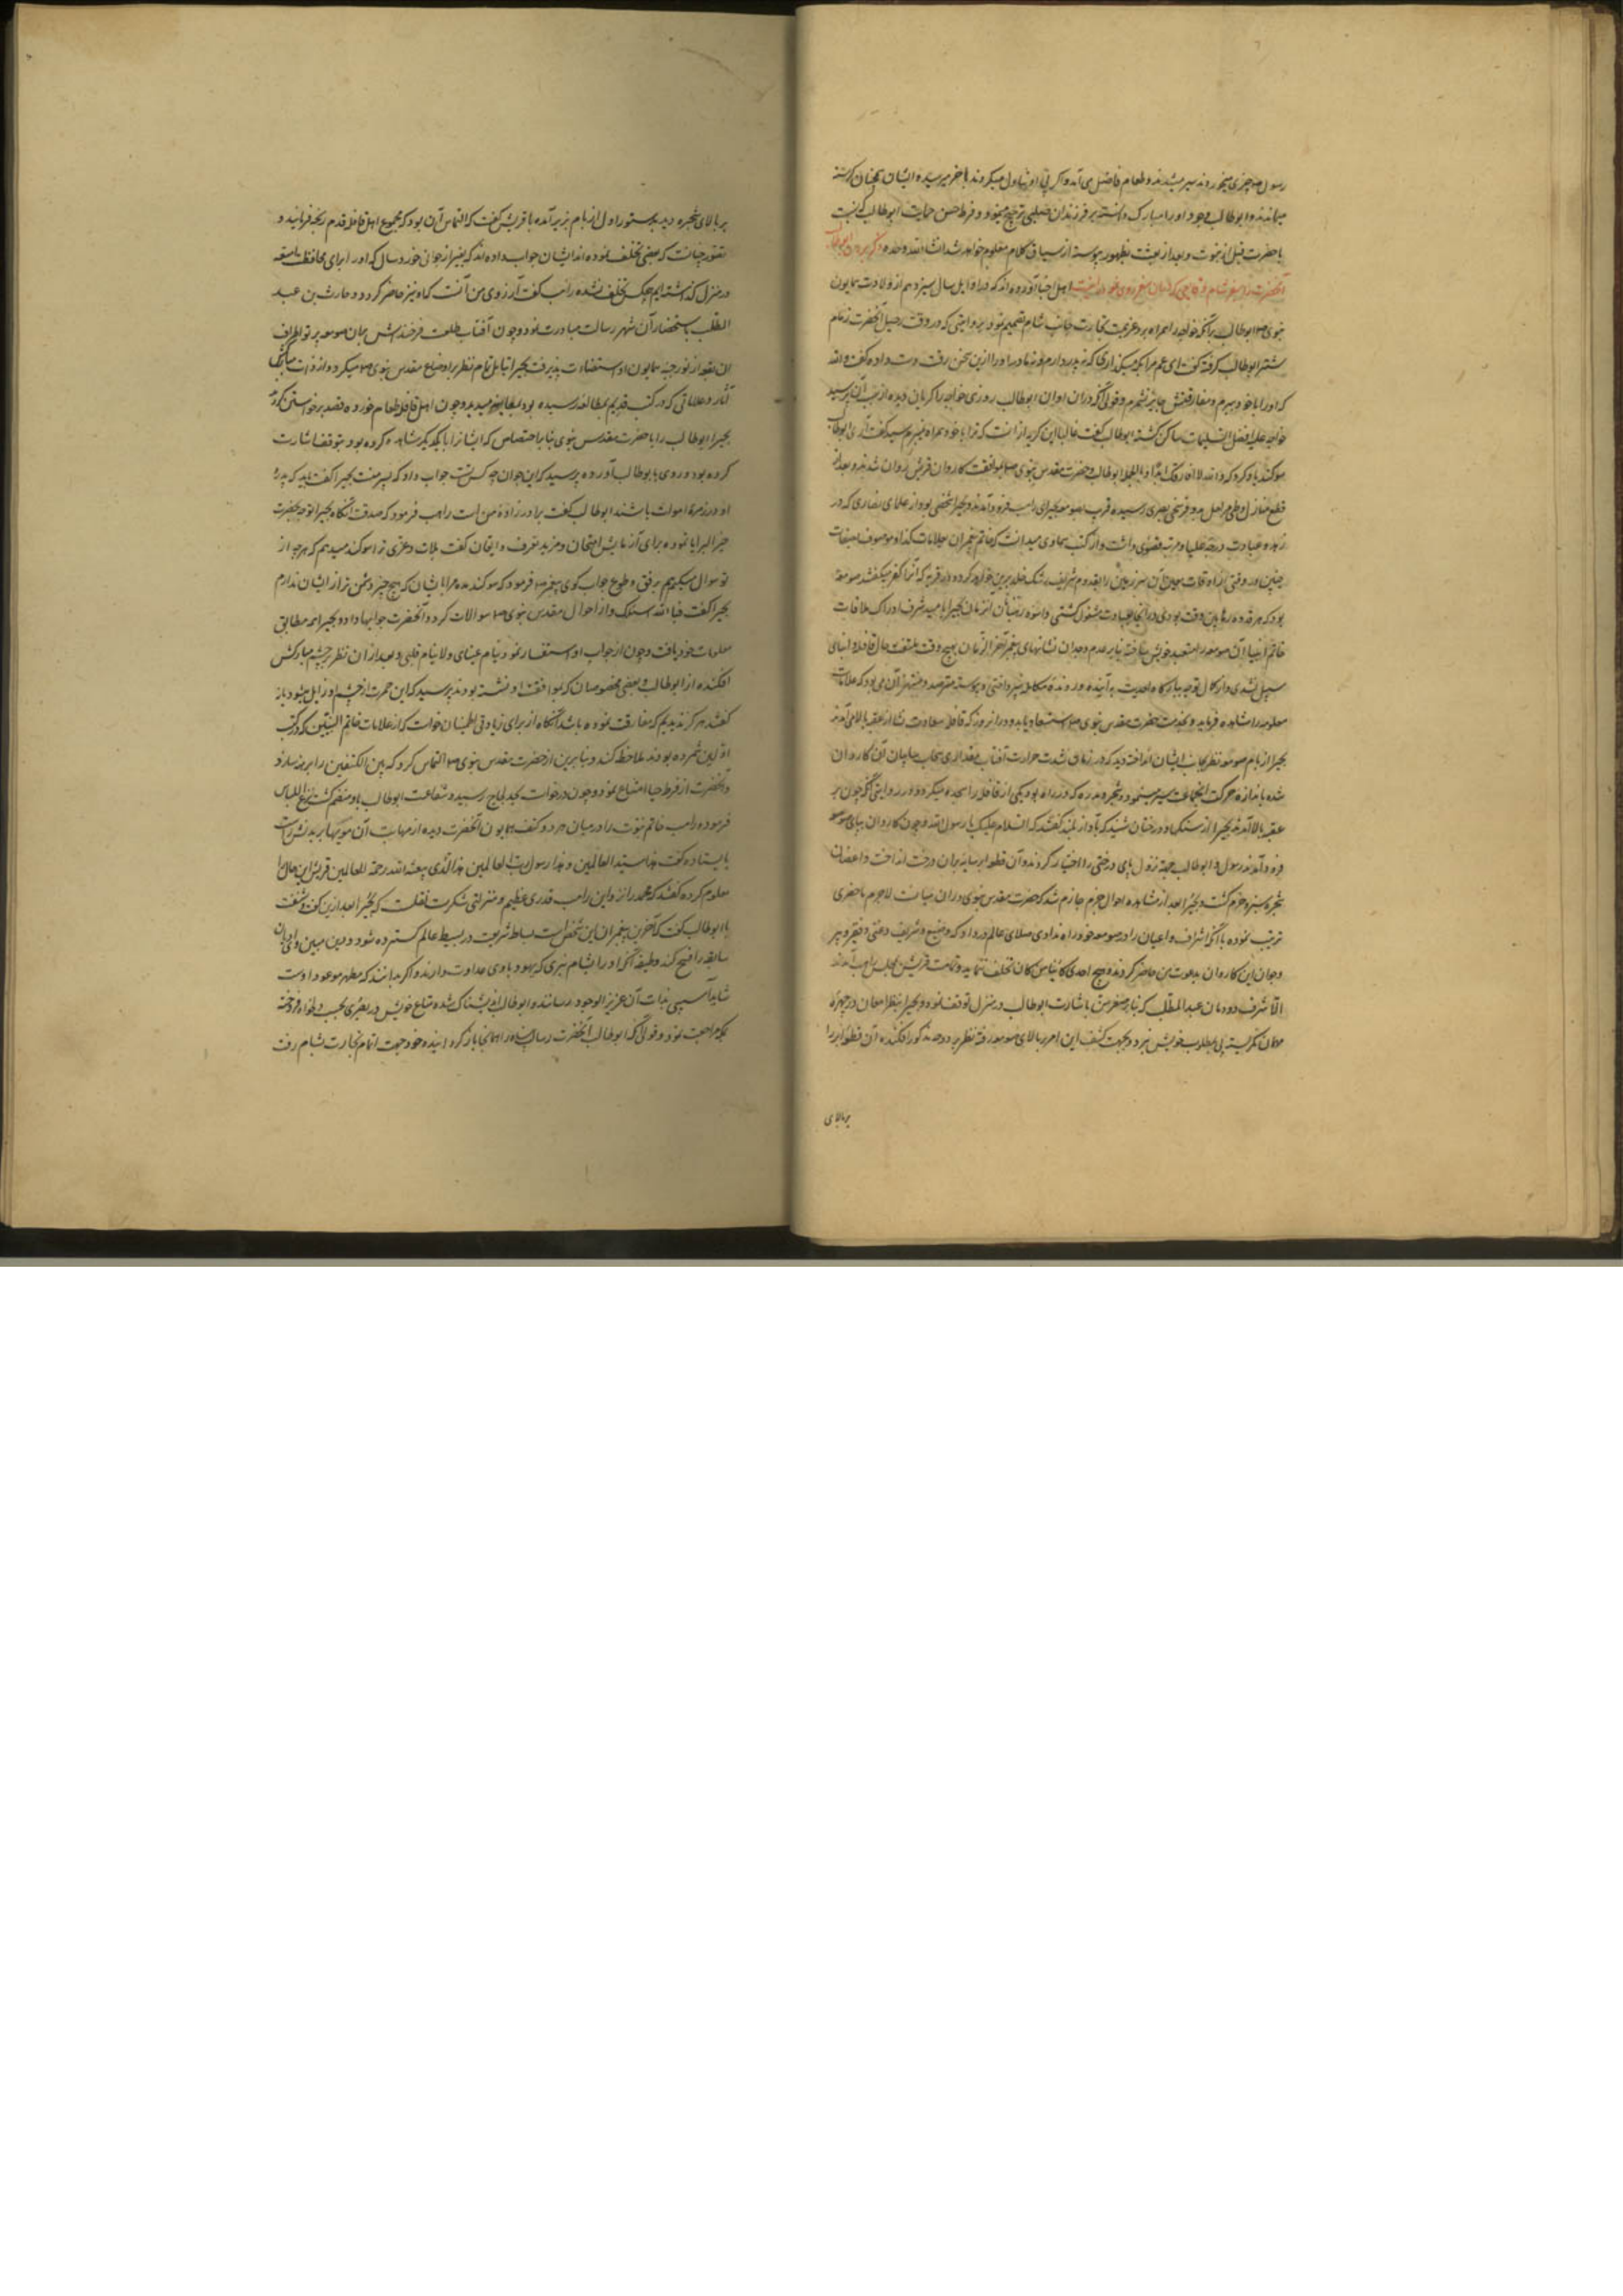 رسول صه چیزی میخوردند سیر میشدند و طعام فاضل می آمد و اگر بی او تناول میکردند تا خر میرسیده ایشان همچنان گرسنه
میماندند و ابوطالب وجود او را مبارک دانسته بر فرزندان صلبی ترجیح مینمود و فرط حسن حمایت ابوطالب که نسبت
با حضرت قبل از نبوت و بعد از بعثت بظهور پیوسته از سیاق کلام معلوم خواهد شد انشا الله وحده ذکر بردن ابوطالب
آنحضرت را بسفر شام و قایعی که در ان سفر روی نمود اهل اخبار آورده اند که در اوایل سال سیزدهم از ولادت همایون
نبوی صه ابوطالب بی آنکه خواجه را همراه برد عزیمت تجارت جانب شام تصمیم نمود بروایتی که در وقت رحیل آنحضرت زمام
شتر ابوطالب گرفته گفت ای عم مرا بکه میگذاری که نه پدر دارم و نه مادر او را ازین سخن رقت دست داده گفت والله
که او را با خود ببرم و مفارقتش جایز نشمرم و قولی آنکه در ان اوان ابوطالب روزی خواجه را گریان دیده از سبب آن پرسید
خواجه علیه افضل التسلیمات ساکن گشته ابوطالب گفت غالبا این گریه از انست که ترا با خود همراه نمیبرم سید گفت آری ابوطالب
سوگند یاد کرد که والله لا افارقک ابدا و بالجمله ابوطالب و حضرت مقدس نبوی صه بموافقت کاروان قریش روان شدند و بعد از
قطع منازل و طی مراحل بدو فرسخی بصری رسیده قرب صومعه بحیرای راهب فرود آمدند و بحیرا شخصی بود از علمای نصاری که در
زهد و عبادت درجه علیا و مرتبه قصوی داشت و از کتب سماوی میدانست که خاتم پیغمبران بعلامات کذا و موصوف بصفات
چنین در وقتی از اوقات آن سرزمین را بقدوم شریف رشک خلد برین خواهد کرد و در قریه که آنرا کفر میگفتند صومعه
بود که هر قدوه رهابین وقت بودی در انجا بعبادت مشغول گشتی و اسوه رهبانان آن زمان بحیرا بامید شرف ادراک ملاقات
خاتم انبیا آن صومعه را متعبد خویش ساخته بنابر عدم وجدان نشانهای پیغمبر آخر الزمان بهیچ وقت ملتفت حال قافله و ابنای
سبیل نشدی و از کمال توجه ببارگاه احدیت به آینده و رونده مکالمه نپرداختی و پیوسته مترصد و منتظر آن می بود که علامات
معلومه را مشاهده فرماید و بخدمت حضرت مقدس نبوی صه استسعاد یابد و در انروز که قافله سعادت نشان از عقبه بالا می آمدند
بحیرا از بام صومعه نظر بجانب ایشان انداخت دید که در زمان شدت حرارت آفتاب بمقداری سحاب سایبان آن کاروان
شده باندازه حرکت آنجماعت سیر مینمود و شجر و مدره که در راه بود یکی از قافله را سجده میکرد و در روایتی آنکه چون بر
عقبه بالا آمدند بحیرا از سنگها و درختان شنید که بآواز بلند گفتند که السلام علیک یا رسول الله و چون کاروان بپای صومعه
فرود آمدند رسول و ابوطالب جهة نزول پای درختی را اختیار کردند و آن قطعه ابر سایه بران درخت انداخت و اغصان
شجره سبز و خرم گشت و بحیرا بعد از مشاهده احوال جزم جازم شد که حضرت مقدس نبوی در ان میانست لاجرم ماحضری
ترتیب نموده تا آنکه اشراف و اعیان را در صومعه خود راه ندادی صلای عالم در داد که وضیع و شریف و غنی و فقیر و پیر
و جوان این کاروان بدعوت من حاضر گردند و هیچ احدی کائنا من کان تخلف ننماید و تمامت قریش بمجلس راهب آمدند
الا اشرف دودمان عبدالمطلب که بنابر صغر سن باشارت ابوطالب در منزل توقف نمود و بحیرا بنظر امعان در چهره
مهمانان نگریسته پی بمطلوب خویش نبرد و بجهت کشف این امر بر بالای صومعه رفته نظر بدوحه مذکور افکنده آن قطعه ابر را
بر بالای
بر بالای شجره دید بدستور اول از بام بزیر آمده با قریش گفت که التماس آن بود که مجموع اهل قافله قدم رنجه فرمایند و
تصور چنانست که بعضی تخلف نموده اند ایشان جواب داده اند که بغیر از جوانی خورد سال که او را برای محافظت امتعه
در منزل گذاشته ایم هیچکس تخلف نشده راهب گفت آرزوی من آنست که او نیز حاضر گردد و حارث بن عبد
المطلب باستحضار آن شهر رسالت مبادرت نمود و چون آفتاب طلعت فرخنده اش بمان صومعه پرتو اطراف
ان بقعه از نور جبهه همایون او استضاءت پذیرفت بحیرا بتامل تمام نظر بر اوضاع مقدس نبوی صه میکرد و از ذات ملک
آثار و علاماتی که در کتب قدیم بمطالعه رسیده بود بمعاینه میدید و چون اهل قافله طعام خورده قصد برخواستن کردند
بحیرا ابوطالب را با حضرت مقدس نبوی بنابر اختصاص که ایشانرا با یکدیگر مشاهده کرده بود بتوقف اشارت
کرده بود و روی بابوطالب آورده پرسید که این جوان چه کس تست جواب داد که پسر منست بحیرا گفت باید که پدر
او در زمره اموات باشند ابوطالب گفت برادر زاده من است راهب فرمود که صدقت آنگاه بحیرا توجه بحضرت
خیر البرایا نموده برای آزمایش و امتحان و مزید تعرف و ایقان گفت بلات و عزی ترا سوگند میدهم که هرچه از
تو سوال میکنم برفق و طوع جواب گوی پیغمبر صه فرمود که سوگند مده مرا بایشان که هیچ چیز دشمن تر از ایشان ندارم
بحیرا گفت فبا الله اسئلک و از احوال مقدس نبوی صه سوالات کرد و آنحضرت جوابها داد و بحیرا همه مطابق
معلومات خود یافت و چون از جواب او استفسار نمود تنام عینای و لا ینام قلبی و بعد از ان نظر بر چشم مبارکش
افکنده از ابوطالب و بعضی مخصوصان که بموافقت او نشسته بودند پرسید که این حمرت از چشم او زایل میشود یا نه
گفتند هرگز ندیدیم که مفارقت نموده باشد آنگاه از برای زیادتی اطمینان خواست که از علامات خاتم النبیین که در کتب
اولین شمرده بودند ملاحظه کند و بنابرین از حضرت مقدس نبوی صه التماس کرد که بین الکتفین را برهنه سازد
و آنحضرت از فرط حیا امتناع نمود و چون درخواست بحد لجاج رسید و شفاعت ابوطالب باو منضم گشت نزع اللباس
فرموده راهب خاتم نبوت را در میان هر دو کتف همایون آنحضرت دیده از مهابت آن مویها بر بدنش راست
بایستاده گفت هذا سید العالمین و هذا رسول رب العالمین هذا الذی یبعثه الله رحمة للعالمین قریش این حال را
معلوم کرده گفتند که محمد را نزد این راهب قدری عظیم و منزلتی شگرفست نقلست که بحیرا بعد ازین کشف
با ابوطالب گفت که آخرین پیغمبران این شخص است بساط شریعت در بسیط عالم گسترده شود و دین مبین او ادیان
سابقه را فسخ کند وظیفه آنکه او را بشام نبری که یهود با وی عداوت دارند و اگر بدانند که مظهر موعود اوست
شاید آسیبی بذات آن عزیز الوجود رسانند و ابوطالب اندیشناک شده متاع خویش در بصری بحسب دلخواه فروخته
بمکه مراجعت نمود و قولی آنکه ابوطالب آنحضرت رسالت پناه را از همانجا باز گردانیده خود جهت اتمام تجارت بشام رفت